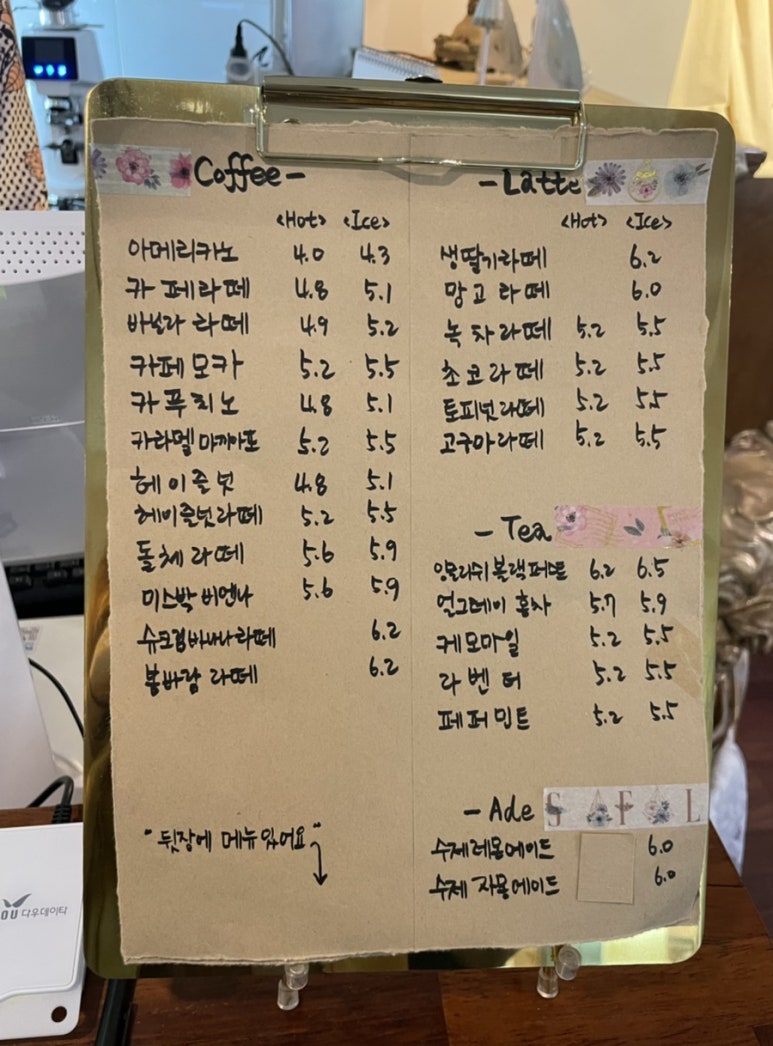 Coffee-
<Hot> <Ice>
아메리카노 4.0 4.3
카페라떼 4.8 5.1
바닐라 라떼 4.9 5.2
카페모카 5.2 5.5
카푸치노 4.8 5.1
카라멜 마끼아또 5.2 5.5
헤이즐넛 4.8 5.1
헤이즐넛라떼 5.2 5.5
돌체라떼 5.6 5.9
미스박 비엔나 5.6 5.9
슈크림바나나라떼 6.2
봄바람 라떼 6.2
"뒷장에 메뉴있어요"
- Latte
<Hot> <Ice>
생딸기라떼 6.2
망고라떼 6.0
녹차라떼 5.2 5.5
초코라떼 5.2 5.5
토피넛라떼 5.2 5.5
고구마라떼 5.2 5.5
- Tea
잉글리쉬 블랙퍼스트 6.2 6.5
얼그레이 홍차 5.7 5.9
케모마일 5.2 5.5
라벤더 5.2 5.5
페퍼민트 5.2 5.5
- Ade
S F L
수제레몬에이드 6.0
수제 자몽에이드 6.0
OU 다우데이타